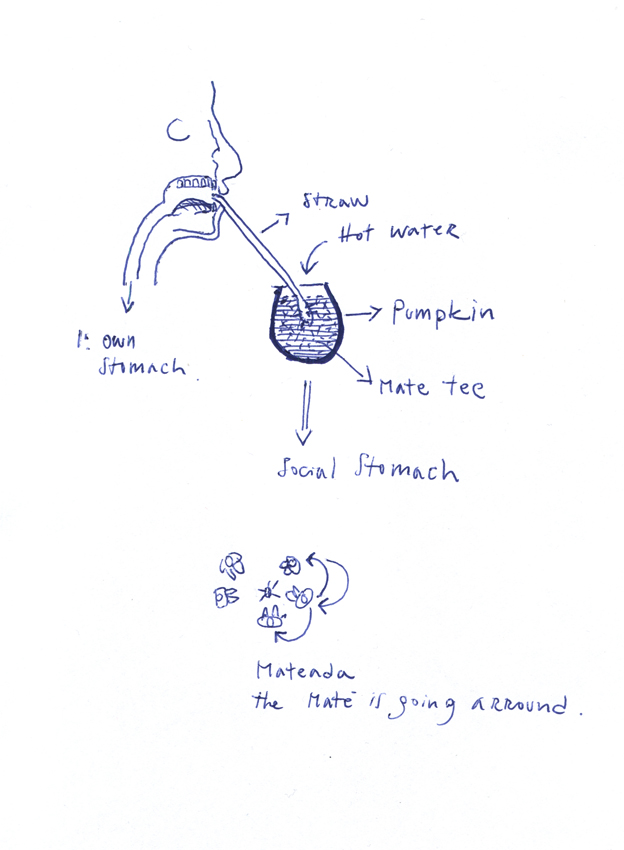 Straw
Hot water
Pumpkin
1: own
Stomach.
Mate tee
Social Stomach
Mateada
the Maté is going arround.